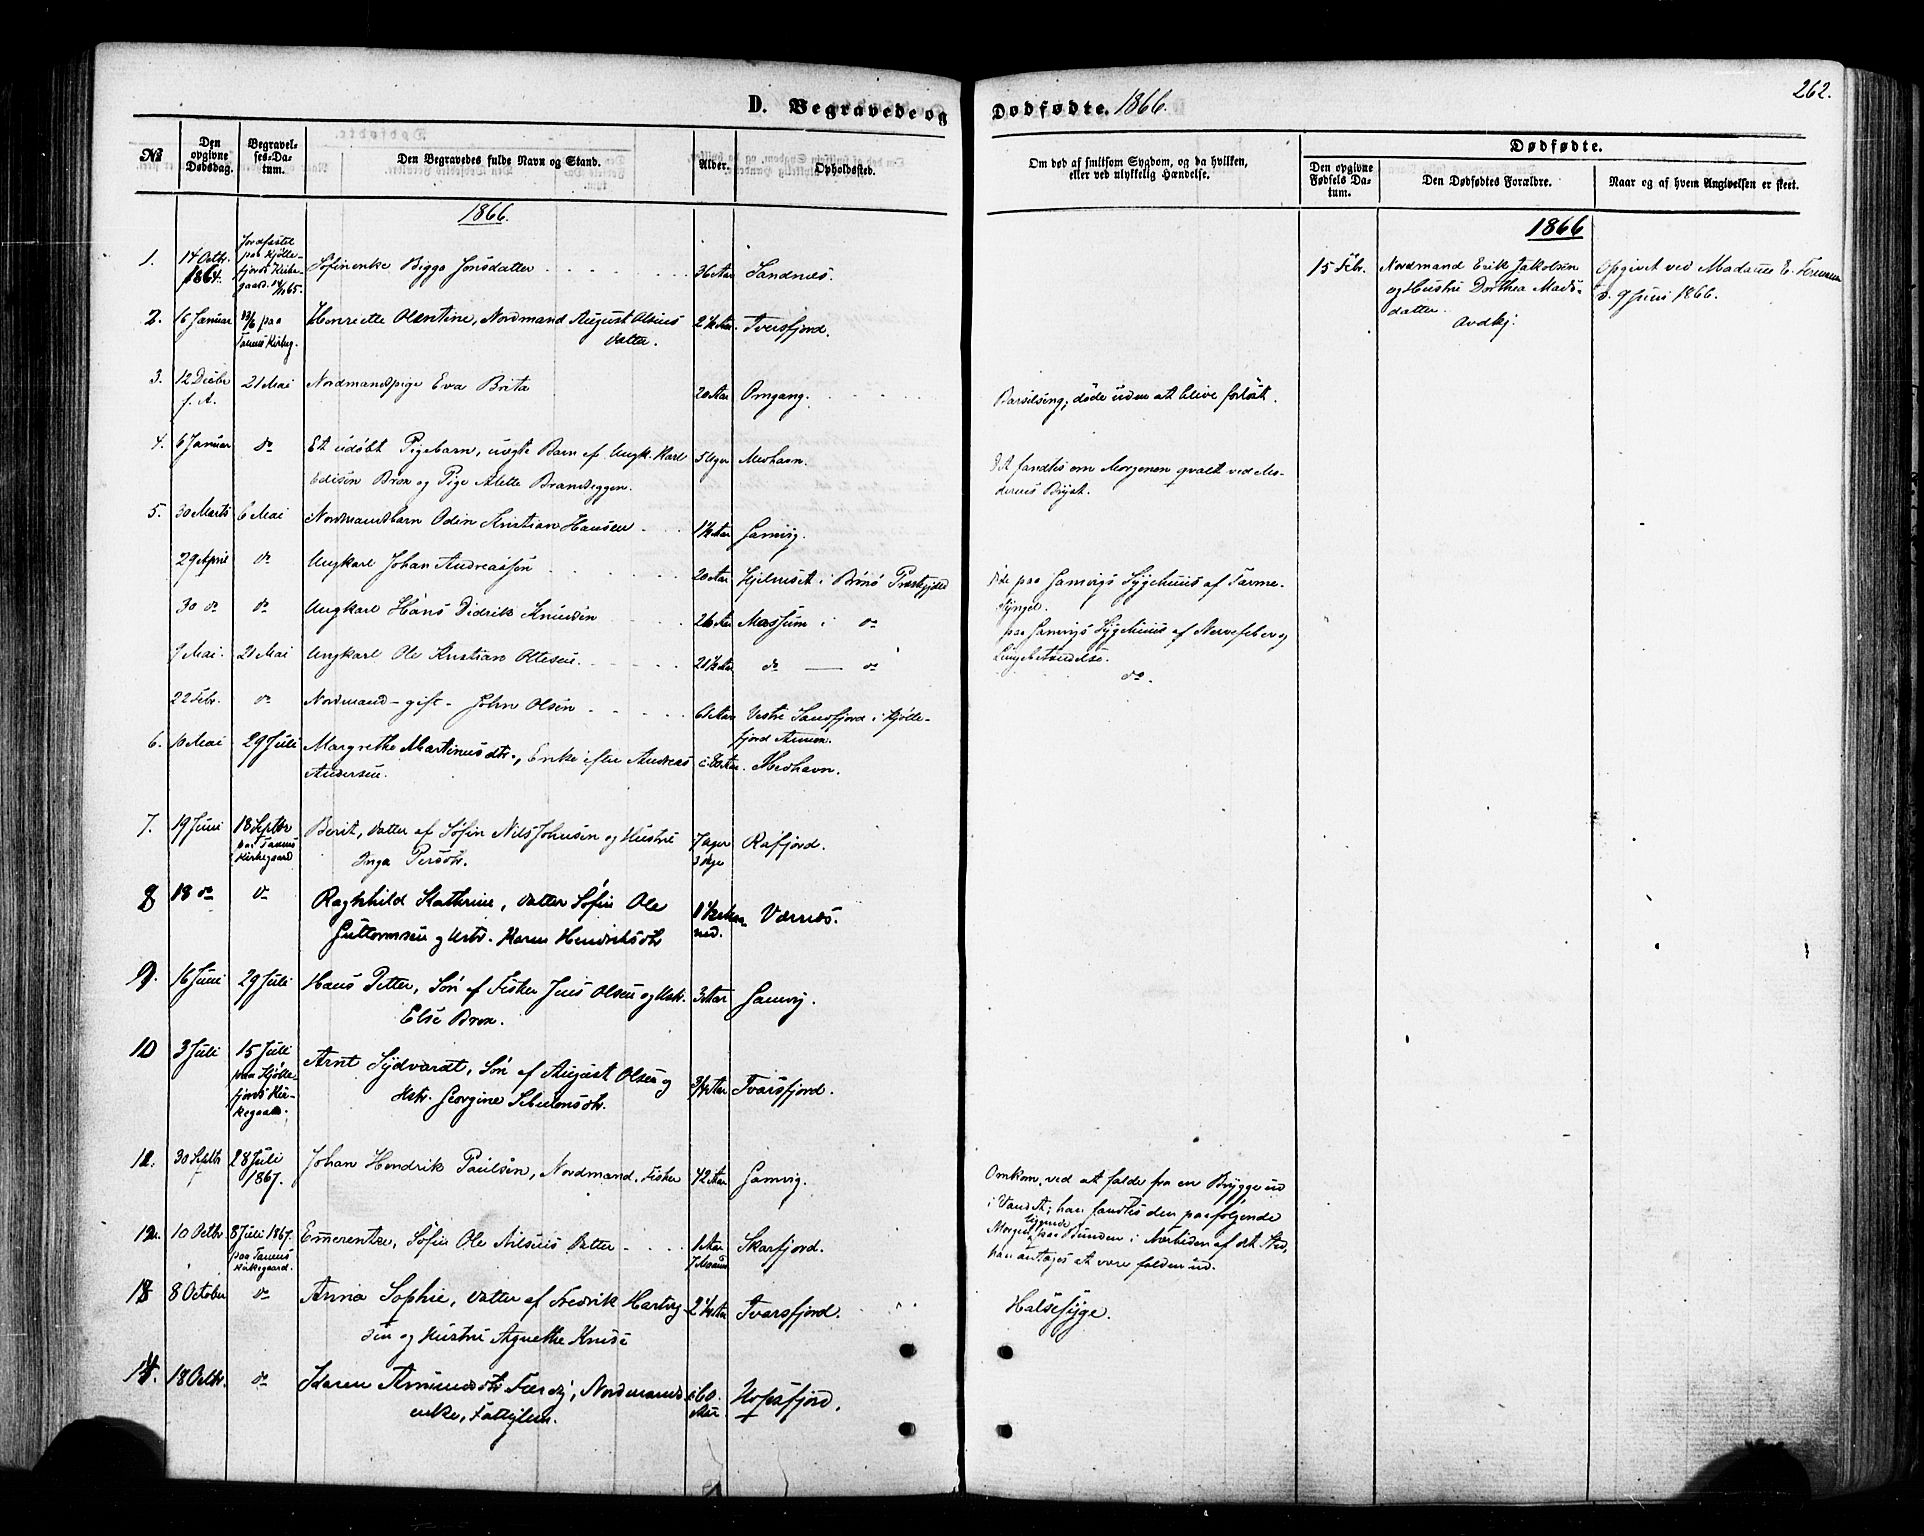 262.
D. Begravede og Dødfødte. 1866.
No
Den opgivne Dødsdag.
Begravelses-Datum.
Den Begravedes fulde Navn og Stand.
Alder.
Opholdssted.
Om død af smitsom Sygdom, og da hvilken, eller ved ulykkelig Hændelse.
Dødfødte.
Den opgivne Fødsels Datum.
Den Dødfødtes Forældre.
Naar og af hvem Angivelsen er skeet.
1866.
1866
1. 14 Octbr. 1864. Jordfæstet paa Kjøllefjords Kirkegaard Søfinenke Bigga Jonsdatter 36 Aar Sandnæs.
15 Febr. Nordmand Erik Jakobsen
og Hustru Dorthea Mads-
datter.
Opgivet ved Madame E.
d. 9 Juni 1866.
2. 16 Januar 13/6 paa Tanens Kirkeg. Henriette Olentine, Nordmand August Olsens
Datter. 2 1/2 Aar. Tvarsfjord.
3. 12 Decbr f. A. 21 Mai Nordmandspige Eva Brita 20 Aar Omgang.
Barselseng, døde uden at blive forløst.
4. 6 Januar do Et udøbt Pigebarn, uægte Barn af Ungk. Karl
Edisen Brox og Pige Alette Brandeggen. 5 Uger Mehavn.
Det fandtes om Morgenen qvalt ved Mo-
derens Bryst.
5. 30 Marts 6 Mai Nordmandsbarn Odin Kristian Hansen 1 1/2 Aar Gamvig.
29 April do Ungkarl Johan Andreassen 20 Aar i Brønø Præstegjeld
Døde paa Gamvigs Sygehuus af
30 do do Ungkarl Hans Didrik Knudsen 26 Aar i do
paa Gamvigs Sygehuus af Nervefeber og
Lungebetændelse.
9 Mai. 21 Mai Ungkarl Ole Kristian Ottesen 21 1/2 Aar do — do
do.
22 Febr. do Nordmand - gift - John Olsen 61 Aar Vestre Sandfjord i Kjølle-
fjord Annex.
6. 10 Mai 29 Juli Margrethe Martinusdtr., Enke efter Andreas
Andersen. c. 80 Aar. Mehavn.
7. 19 Juni 18 Septbr paa Tanens Kirkegaard Berit, datter af Søfin Nils Johnsen og Hustru
Inga Persdtr. 7 Uger 3 Dge Rafjord.
8 18 do do Raghnild Kathrine, datter Søfin Ole
Guttormsen og Hstr. Karen Hendriksdtr 1 1/2 Maaned. Værnæs.
9. 16 Juni 29 Juli Hans Petter, Søn af Fisker Jens Olsen og Hstr.
Else Brox. 3 Aar Gamvig.
10 3 Juli 15 Juli paa Kjøllefjords Kirkegaard. Arnt Sydvardt, Søn af August Olsen og
Hstr. Georgine 3/4 Aar Tvarsfjord.
12. 30 Septbr 28 Juli 1867. Johan Hendrik Paulsen, Nordmand. Fisker 42 Aar Gamvig.
Omkom, ved at falde fra en Brygge ud
i Vandet; han fandtes den paafølgende
Morgen liggende paa Bunden i Nærheden af det Sted,
han antages at være falden ud.
12. 10 Octbr 8 Juli 1867. paa Tanens Kirkegaard. Emerentse, Søfin Ole Nilsens Datter 1 Aar 7 Maaned Skarfjord.
13 8 October do Anna Sophie, datter af Fredrik Hartvig-
sen og Hustru Agnethe 2 1/2 Aar Tvarsfjord.
Halsesyge.
14. 18 Octbr. do Karen Amundsdtr Nordmands
enke, Fattiglem. c. 60 Aar. Hopsfjord.